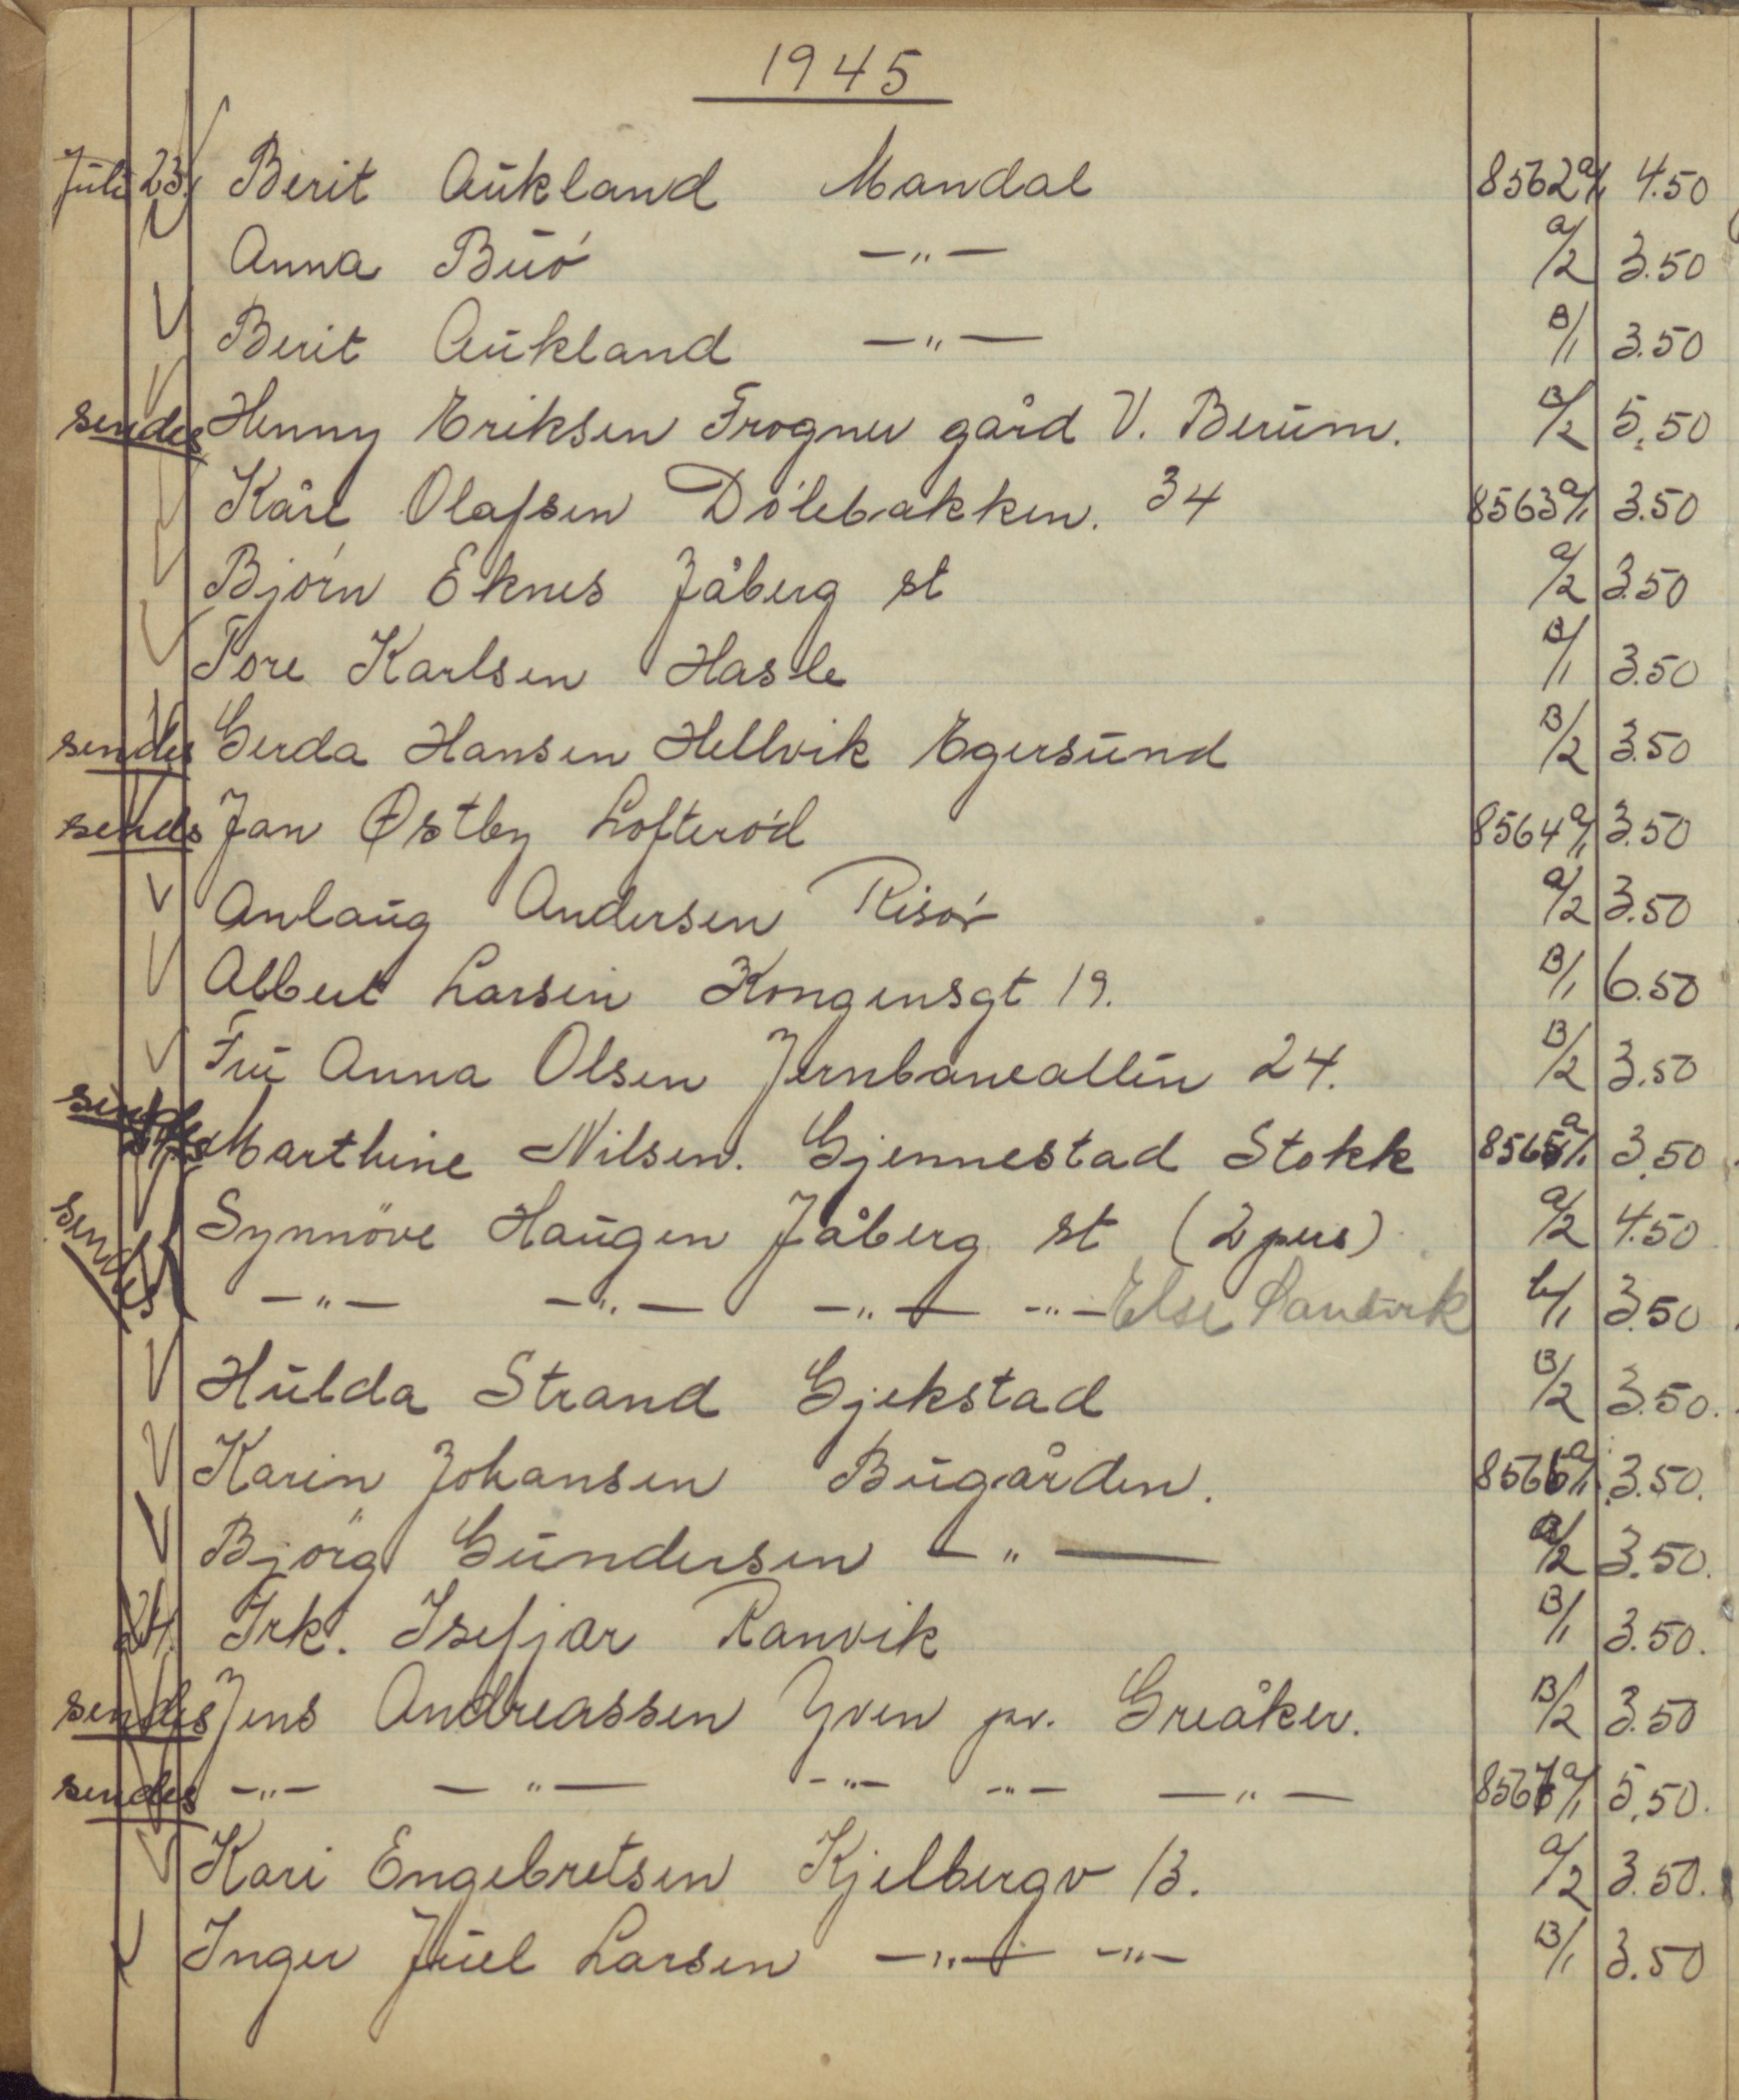 1945
Juli 23. Berit Aukland Mandal 8562 a/1 4.50
Anna Buó —„— a/2 3.50
Berit Aukland —„— B/1 3.50
sendes Henny Eriksen Frogner gård V. Berum. B/2 5.50
Kåre Olafsen Dólebakken. 34 8563 a/1 3.50
Bjórn Eknes Jåberg st a/2 3.50
Tore Karlsen Hasle B/1 3.50
sendes Gerda Hansen Hellvik Egersund B/2 3.50
sendes Jan Østby Lofteród 8564 a/1 3.50
Anlaug Andersen Risór a/2 3.50
Albert Larsen Kongensgt 19. B/1 6.50
Fru Anna Olsen Jernbanealleen 24. B/2 3.50
sendes Marthine Nilsen. Gjennestad Stokk 8565 a/1 3.50
sendes Synnöve Haugen Jåberg st (2 pers) a/2 4.50
—„— —„— —„— —„— Else b/1 3.50
Hulda Strand Gjekstad B/2 3.50.
Karin Johansen Bugården. 8566 a/1 3.50.
Björg Gundersen —„— a/2 3.50.
24. Frk. Isefjær Ranvik B/1 3.50.
sendes Jens Andreassen Yven pr. Greåker. B/2 3.50
sendes —„— —„— —„— —„— —„— 8567 a/1 5.50.
Kari Engebretsen Kjelbergv 13. a/2 3.50.
Inger Juel Larsen —„— —„— B/1 3.50